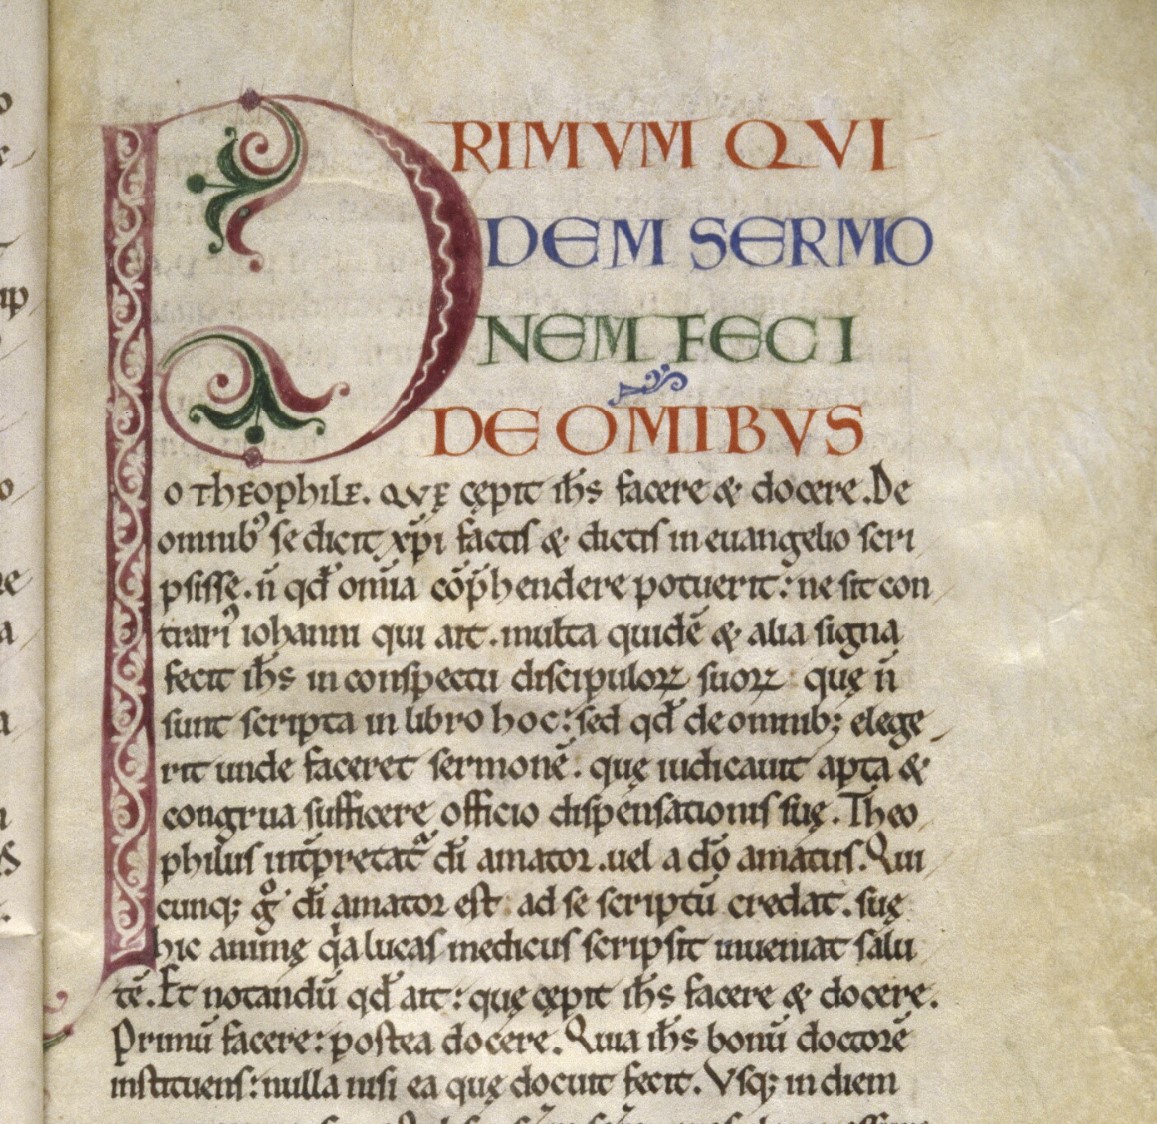 PRIMVM QVI
DEM SERMO
NEM FECI
DE OMIBVS
o Theophile. quę cępit ih̅s facere & docere. De
omnibꝰ se dicit xp̅i factis & dictis in euangelio scri
psisse. n̅ qd̅ om̅ia co̅p̅hendere potuerit: ne sit con
trariꝰ iohanni qui ait. multa quide̅ & alia signa
fecit ih̅s in conspectu discipuloꝝ suoꝝ quę n̅
sunt scripta in libro hoc: sed qd̅ de omnib; elege
rit unde faceret sermone̅. quę iudicauit apta &
congrua sufficere officio dispensationis suę. Theo
philus int̅pretat᷑ di̅ amator. uel a do̅ amatus. Qui
cunq; gͦ di̅ amator est. ad se scriptu̅ credat. suę
hic animę qͣa lucas medicus scripsit inueniat salu
te̅. Et notandu̅ qd̅ ait: quę cępit ih̅s facere & docere.
Primu̅ facere: postea docere. Quia ih̅s bonu̅ doctore̅
instituens: nulla nisi ea quę docuit fecit. Vsq; in diem